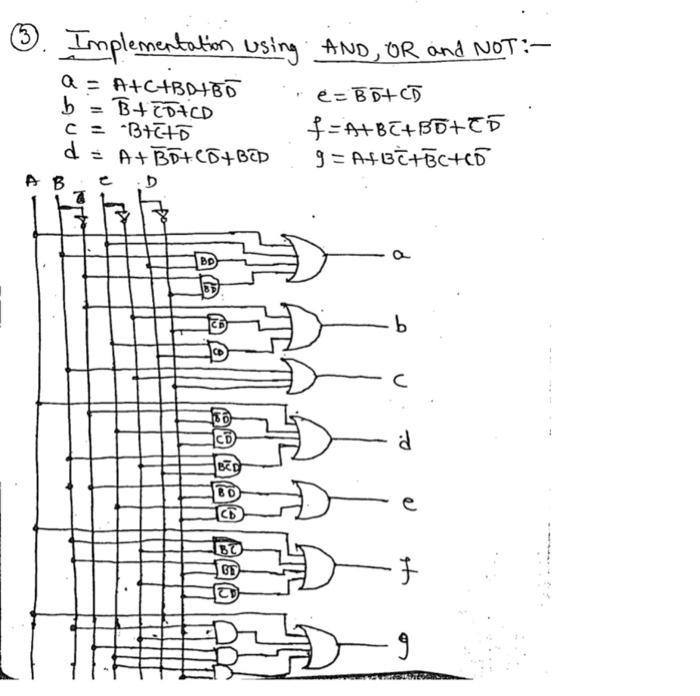 ③. Implementation using AND, OR and NOT:-
a = A+C+BD+B̅D̅
b = B̅+C̅D̅+CD
c = B+C̅+D̅
d = A+B̅D̅+CD̅+BC̅D
e = B̅D̅+CD̅
f = A+BC̅+BD̅+C̅D̅
g = A+BC̅+B̅C+CD̅
A B C D
BD
a
B̅D̅
C̅D̅
b
CD
c
B̅D̅
CD̅
d
BC̅D
B̅D̅
e
CD̅
BC̅
BD̅
f
C̅D̅
g